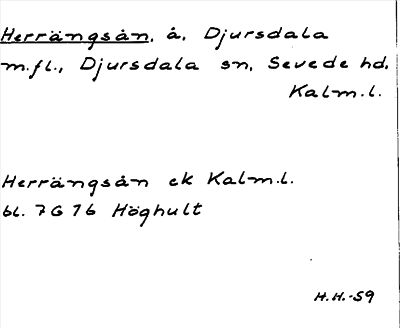 Herrängsån, å, Djursdala
m.fl., Djursdala sn, Sevede hd,
Kalm.l.
Herrängsån ek Kalm.l.
bl. 7G 7b Höghult
H.H.-59